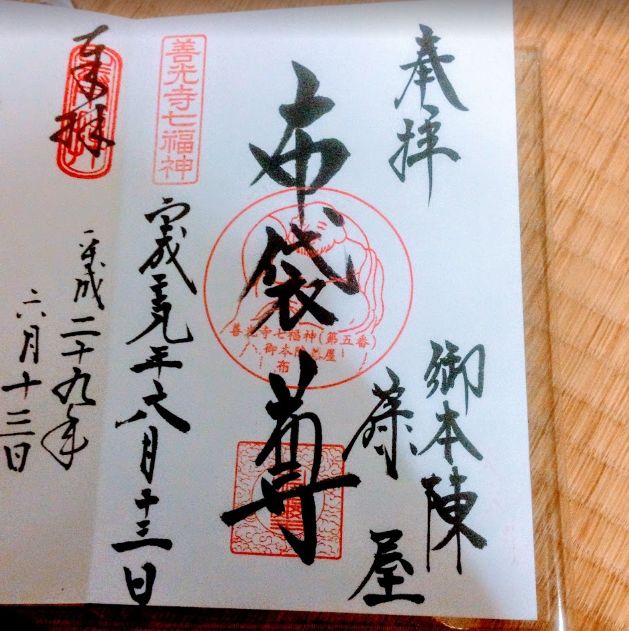 奉拝
御本陣
藤屋
布袋尊
善光寺七福神(第五番)
御本陣藤屋
布
善光寺七福神
平成二十九年六月十三日
奉拝
平成二十九年
六月十三日